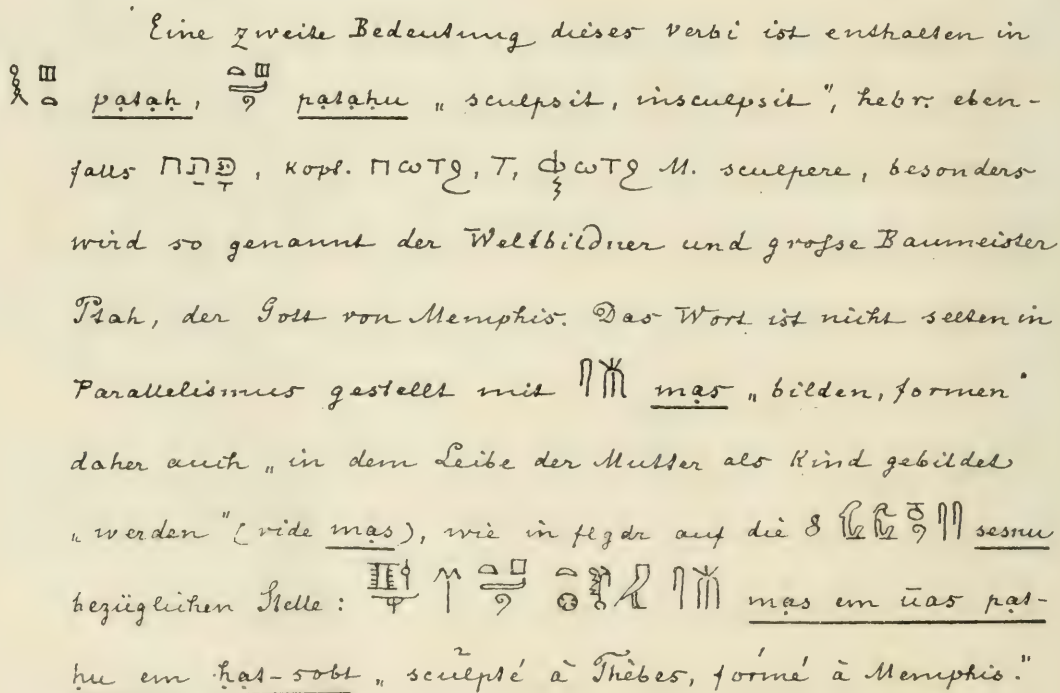 Eine zweite Bedeutung dieses verbi ist enthalten in
pạtạḥ, pạtạḥu „ sculpsit, insculpsit", hebr. eben-
falls פתח, kopt. ⲡⲱⲧϩ, T, ⲫⲱⲧϩ M. sculpere, besonders
wird so genannt der Weltbildner und grosse Baumeister
Ptah, der Gott von Memphis. Das Wort ist nicht selten in
Parallelismus gestellt mit mạs „ bilden, formen"
daher auch „ in dem Leibe der Mutter als Kind gebildet
„ werden" (vide mạs), wie in flgdr auf die 8 sesnu
bezüglichen Stelle: mạs em ūas pạt-
ḥu em ḥạt-sobt „ sculpté à Thèbes, formé à Memphis."